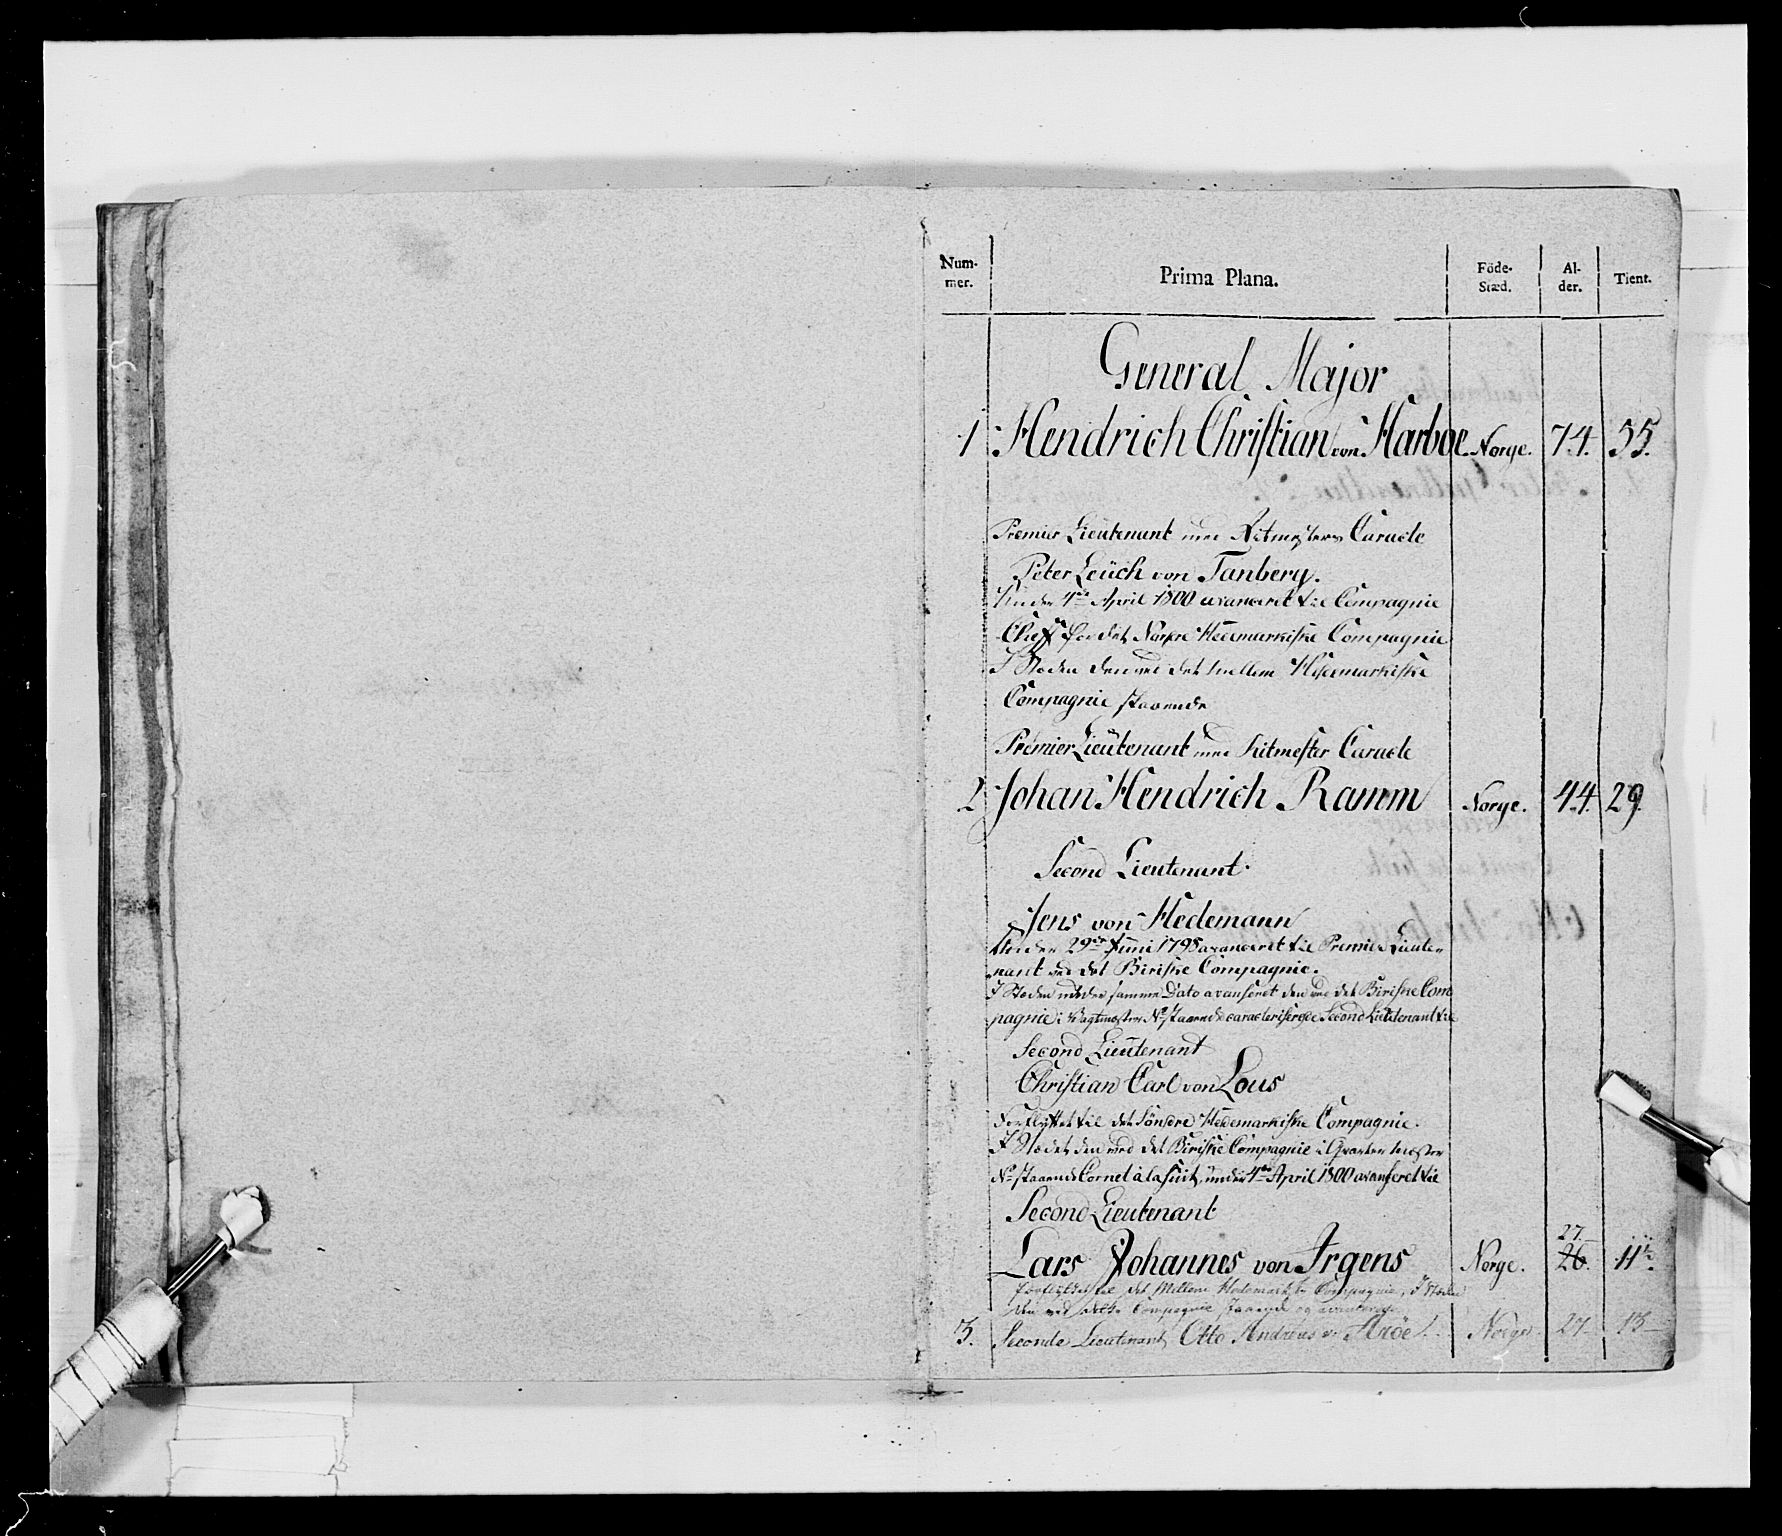 Num-mer. Prima Plana. Föde-Stæd. Al-der. Tient.
General Major
1 Hendrich Christian von Harboe. Norge. 74. 55.
Premier Lieutenant med Ritmesters Caracte
Peter Leüch von Tanberg.
Under 4de April 1800 avanceret til Compagnie
Cheff for det Nordre Hedemarkiske Compagnie
I Steden den ved det Mellem Hedemarkiske
Compagnie staaende
Premier Lieutenant med Ritmester Caracte
2 Johan Hendrich Ramm Norge. 44. 29.
Second Lieutenant.
Jens von Hedemann
Under 29de Juni 1798 avanceret til Premier Lieute-
nant ved det Biriske Compagnie.
I Steden under samme Dato avanseret den ved det Biriske Com
pagnie i Vagtmester No staaende caracteriserede Second Lieutenant til
Second Lieutenant
Christian Carl von Lous
Forflyttet til det Söndre Hedemarkiske Compagnie.
I Stedet den ved det Biriske Compagnie i Qvarteer mester
No staaende Cornet à la Suit, under 4de April 1800 avanseret til
Second Lieutenant
27.
Lars Johannes von Irgens Norge. 26. 11
forflyttet til det Mellem Hedemarkske Compagnie, I Steden
den ved dette Compagnie staaende og avancerede
3. Seconde Lieutenant Otto Andreas v. Aröe Norge 27 13